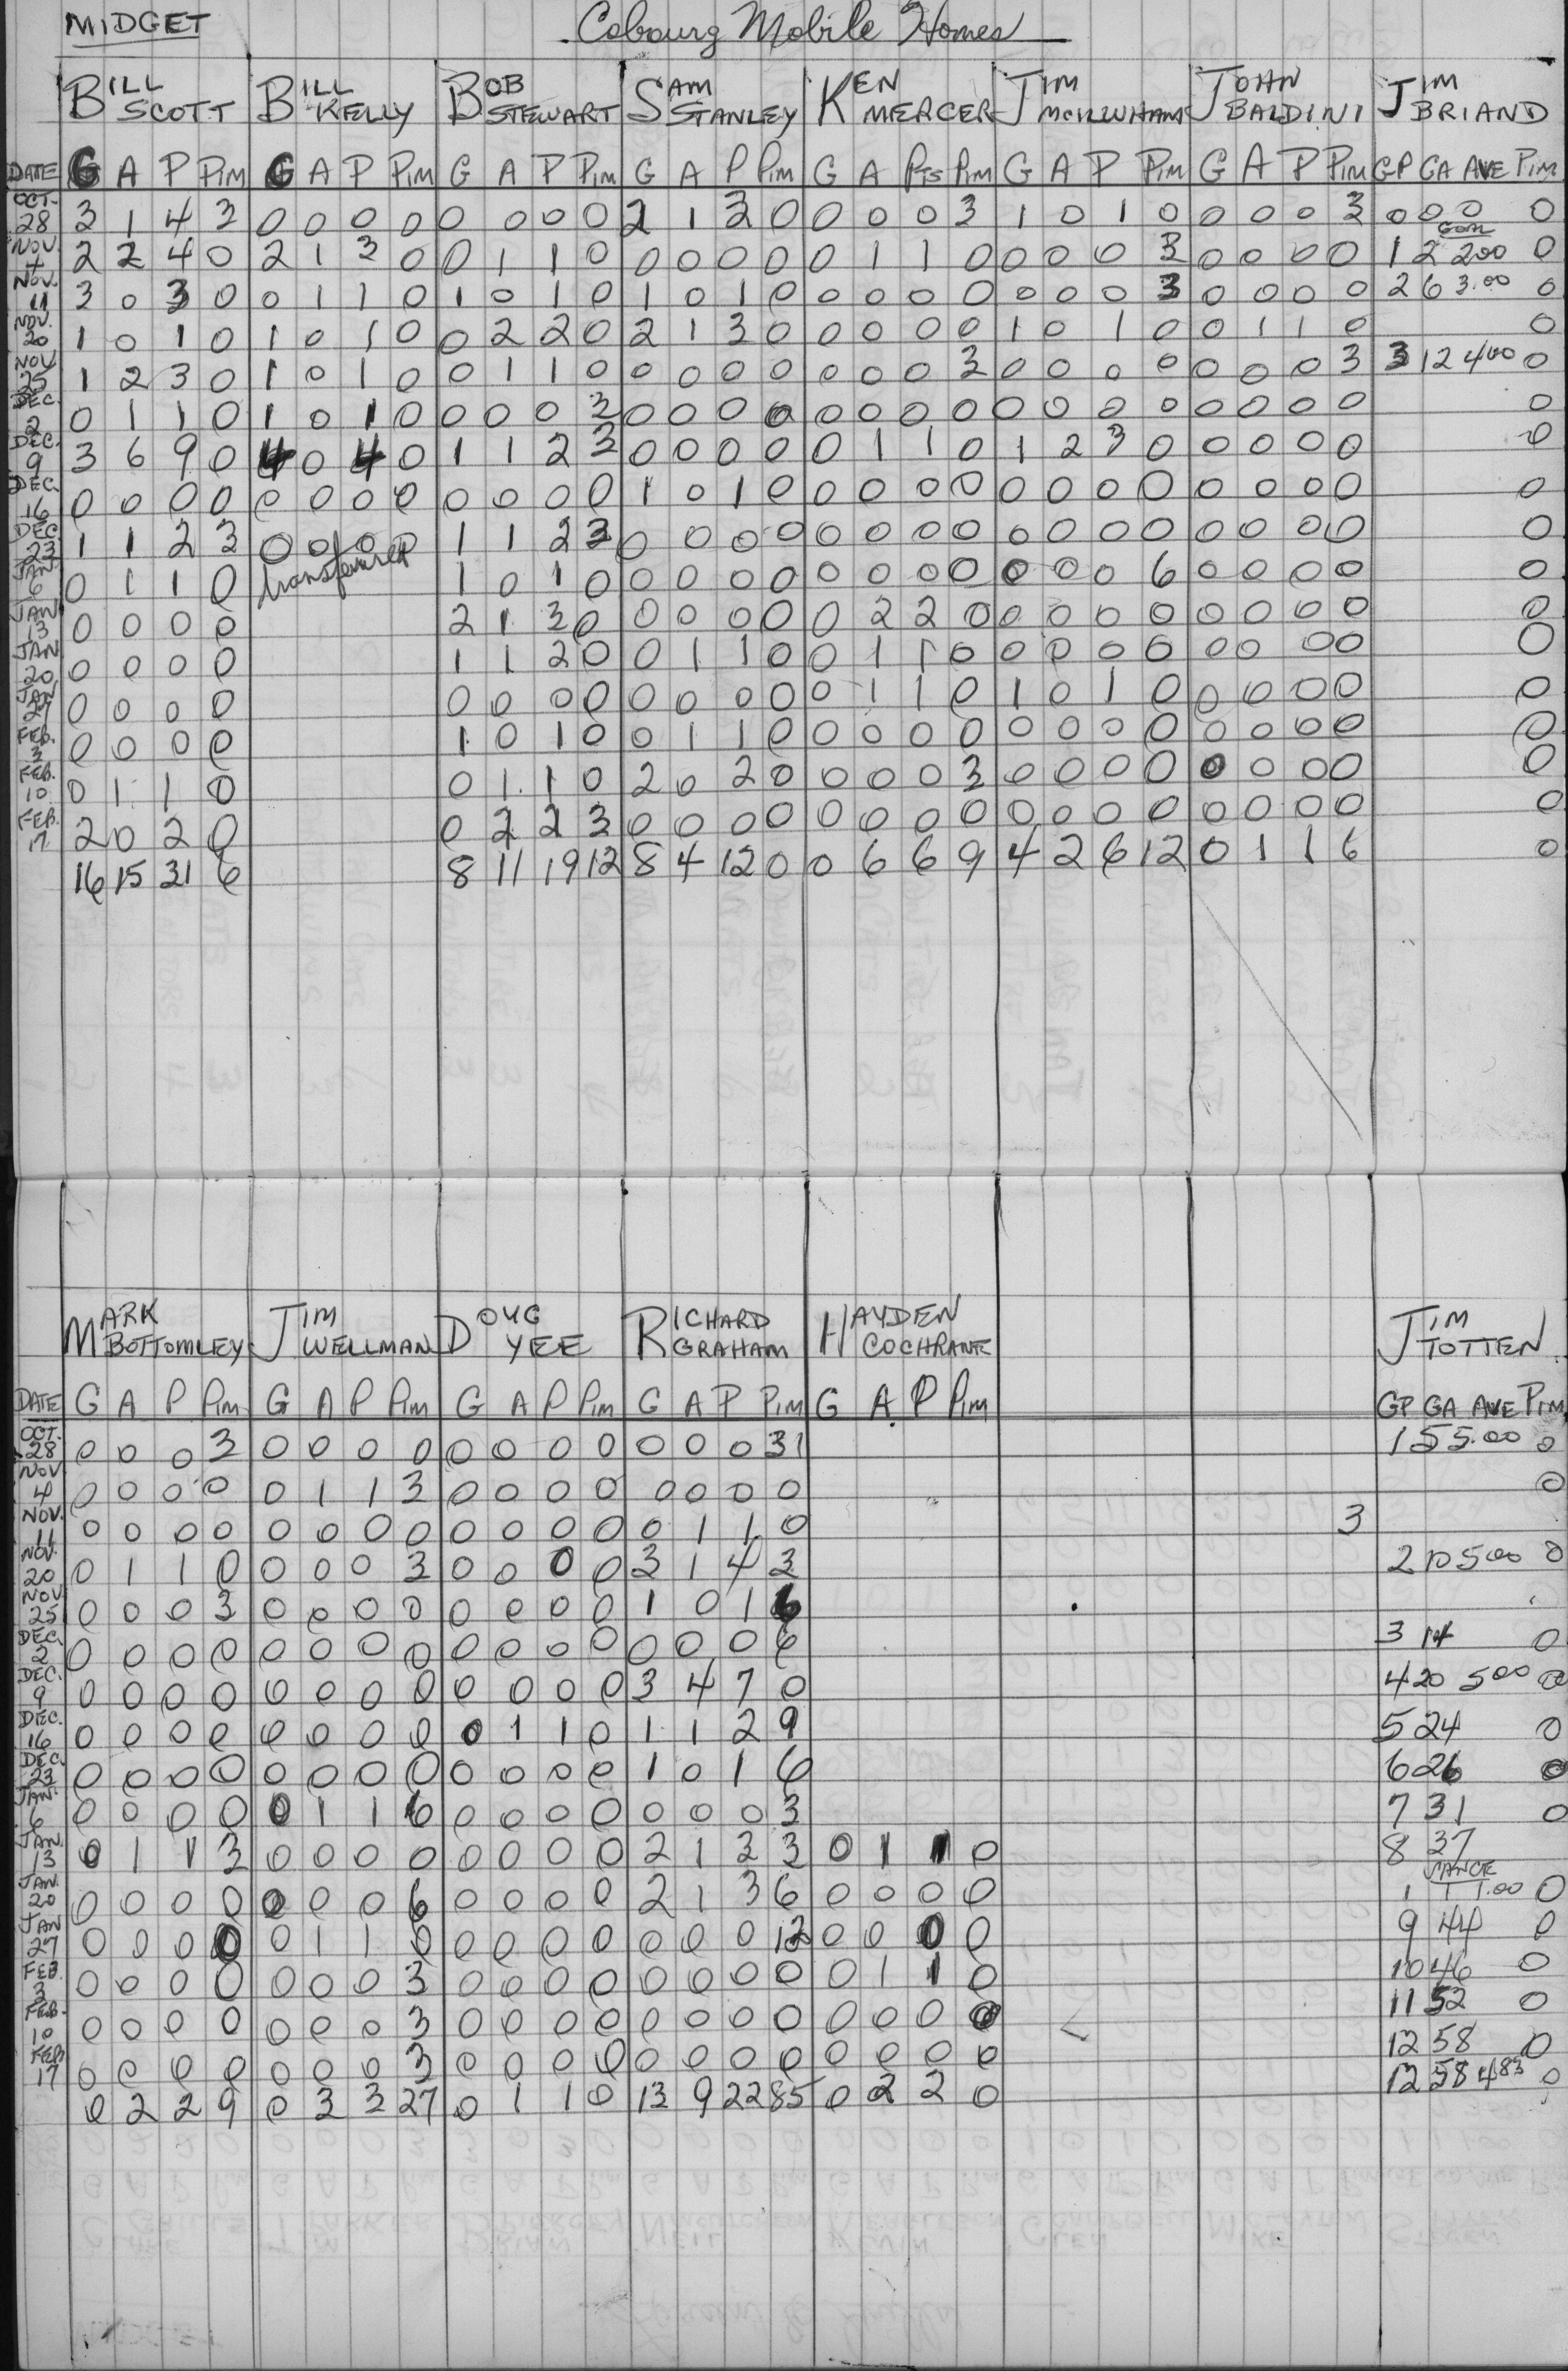 MIDGET
Cobourg Mobile Homes
BILL SCOTT BILL KELLY BOB STEWART SAM STANLEY KEN MERCER JIM MCILWHAM JOHN BALDINI JIM BRIAND
DATE G A P PIM G A P PIM G A P PIM G A P PIM G A PTS PIM G A P PIM G A P PIM GP GA AVE PIM
OCT. 28 3 1 4 3 0 0 0 0 0 0 0 0 2 1 3 0 0 0 0 3 1 0 1 0 0 0 0 3 0 0 0 0
NOV. 4 2 2 4 0 2 1 3 0 0 1 1 0 0 0 0 0 0 1 1 0 0 0 0 3 0 0 0 0 1 2 2.00 0
NOV. 11 3 0 3 0 0 1 1 0 1 0 1 0 1 0 1 0 0 0 0 0 0 0 0 3 0 0 0 0 2 6 3.00 0
NOV. 20 1 0 1 0 1 0 1 0 0 2 2 0 2 1 3 0 0 0 0 0 1 0 1 0 0 1 1 0 0
NOV 25 1 2 3 0 1 0 1 0 0 1 1 0 0 0 0 0 0 0 0 3 0 0 0 0 0 0 0 3 3 12 4.00 0
DEC. 2 0 1 1 0 1 0 1 0 0 0 0 3 0 0 0 0 0 0 0 0 0 0 0 0 0 0 0 0 0
DEC. 9 3 6 9 0 4 0 4 0 1 1 2 3 0 0 0 0 0 1 1 0 1 2 3 0 0 0 0 0 0
DEC. 16 0 0 0 0 0 0 0 0 0 0 0 0 1 0 1 0 0 0 0 0 0 0 0 0 0 0 0 0 0
DEC 23 1 1 2 3 0 0 0 0 1 1 2 3 0 0 0 0 0 0 0 0 0 0 0 0 0 0 0 0 0
JAN 6 0 1 1 0 transferred 1 0 1 0 0 0 0 0 0 0 0 0 0 0 0 6 0 0 0 0 0
JAN 13 0 0 0 0 2 1 3 0 0 0 0 0 0 2 2 0 0 0 0 0 0 0 0 0 0
JAN 20 0 0 0 0 1 1 2 0 0 1 1 0 0 1 1 0 0 0 0 0 0 0 0 0 0
JAN 27 0 0 0 0 0 0 0 0 0 0 0 0 0 1 1 0 1 0 1 0 0 0 0 0 0
FEB. 3 0 0 0 0 1 0 1 0 0 1 1 0 0 0 0 0 0 0 0 0 0 0 0 0 0
FEB. 10 0 1 1 0 0 1 1 0 2 0 2 0 0 0 0 3 0 0 0 0 0 0 0 0 0
FEB. 17 2 0 2 0 0 2 2 3 0 0 0 0 0 0 0 0 0 0 0 0 0 0 0 0 0
16 15 31 6 8 11 19 12 8 4 12 0 0 6 6 9 4 2 6 12 0 1 1 6 0
MARK BOTTOMLEY JIM WELLMAN DOUG YEE RICHARD GRAHAM HAYDEN COCHRANE JIM TOTTEN
DATE G A P PIM G A P PIM G A P PIM G A P PIM G A P PIM GP GA AVE PIM
OCT. 28 0 0 0 3 0 0 0 0 0 0 0 0 0 0 0 31 1 5 5.00 0
NOV 4 0 0 0 0 0 1 1 3 0 0 0 0 0 0 0 0 0
NOV. 11 0 0 0 0 0 0 0 0 0 0 0 0 0 1 1 0 3
NOV. 20 0 1 1 0 0 0 0 3 0 0 0 0 3 1 4 3 2 10 5.00 0
NOV 25 0 0 0 3 0 0 0 0 0 0 0 0 1 0 1 6
DEC. 2 0 0 0 0 0 0 0 0 0 0 0 0 0 0 0 6 3 14 0
DEC. 9 0 0 0 0 0 0 0 0 0 0 0 0 3 4 7 0 4 20 5.00 0
DEC. 16 0 0 0 0 0 0 0 0 0 1 1 0 1 1 2 9 5 24 0
DEC. 23 0 0 0 0 0 0 0 0 0 0 0 0 1 0 1 6 6 26 0
JAN. 6 0 0 0 0 0 1 1 6 0 0 0 0 0 0 0 3 7 31 0
JAN. 13 0 1 1 3 0 0 0 0 0 0 0 0 2 1 3 3 0 1 1 0 8 37
JAN. 20 0 0 0 0 0 0 0 6 0 0 0 0 2 1 3 6 0 0 0 0 1 1 1.00 0
JAN 27 0 0 0 0 0 1 1 0 0 0 0 0 0 0 0 12 0 0 0 0 9 44 0
FEB. 3 0 0 0 0 0 0 0 3 0 0 0 0 0 0 0 0 0 1 1 0 10 46 0
FEB. 10 0 0 0 0 0 0 0 3 0 0 0 0 0 0 0 0 0 0 0 0 11 52 0
FEB 17 0 0 0 0 0 0 0 3 0 0 0 0 0 0 0 0 0 0 0 0 12 58 0
0 2 2 9 0 3 3 27 0 1 1 0 13 9 22 85 0 2 2 0 12 58 4.83 0